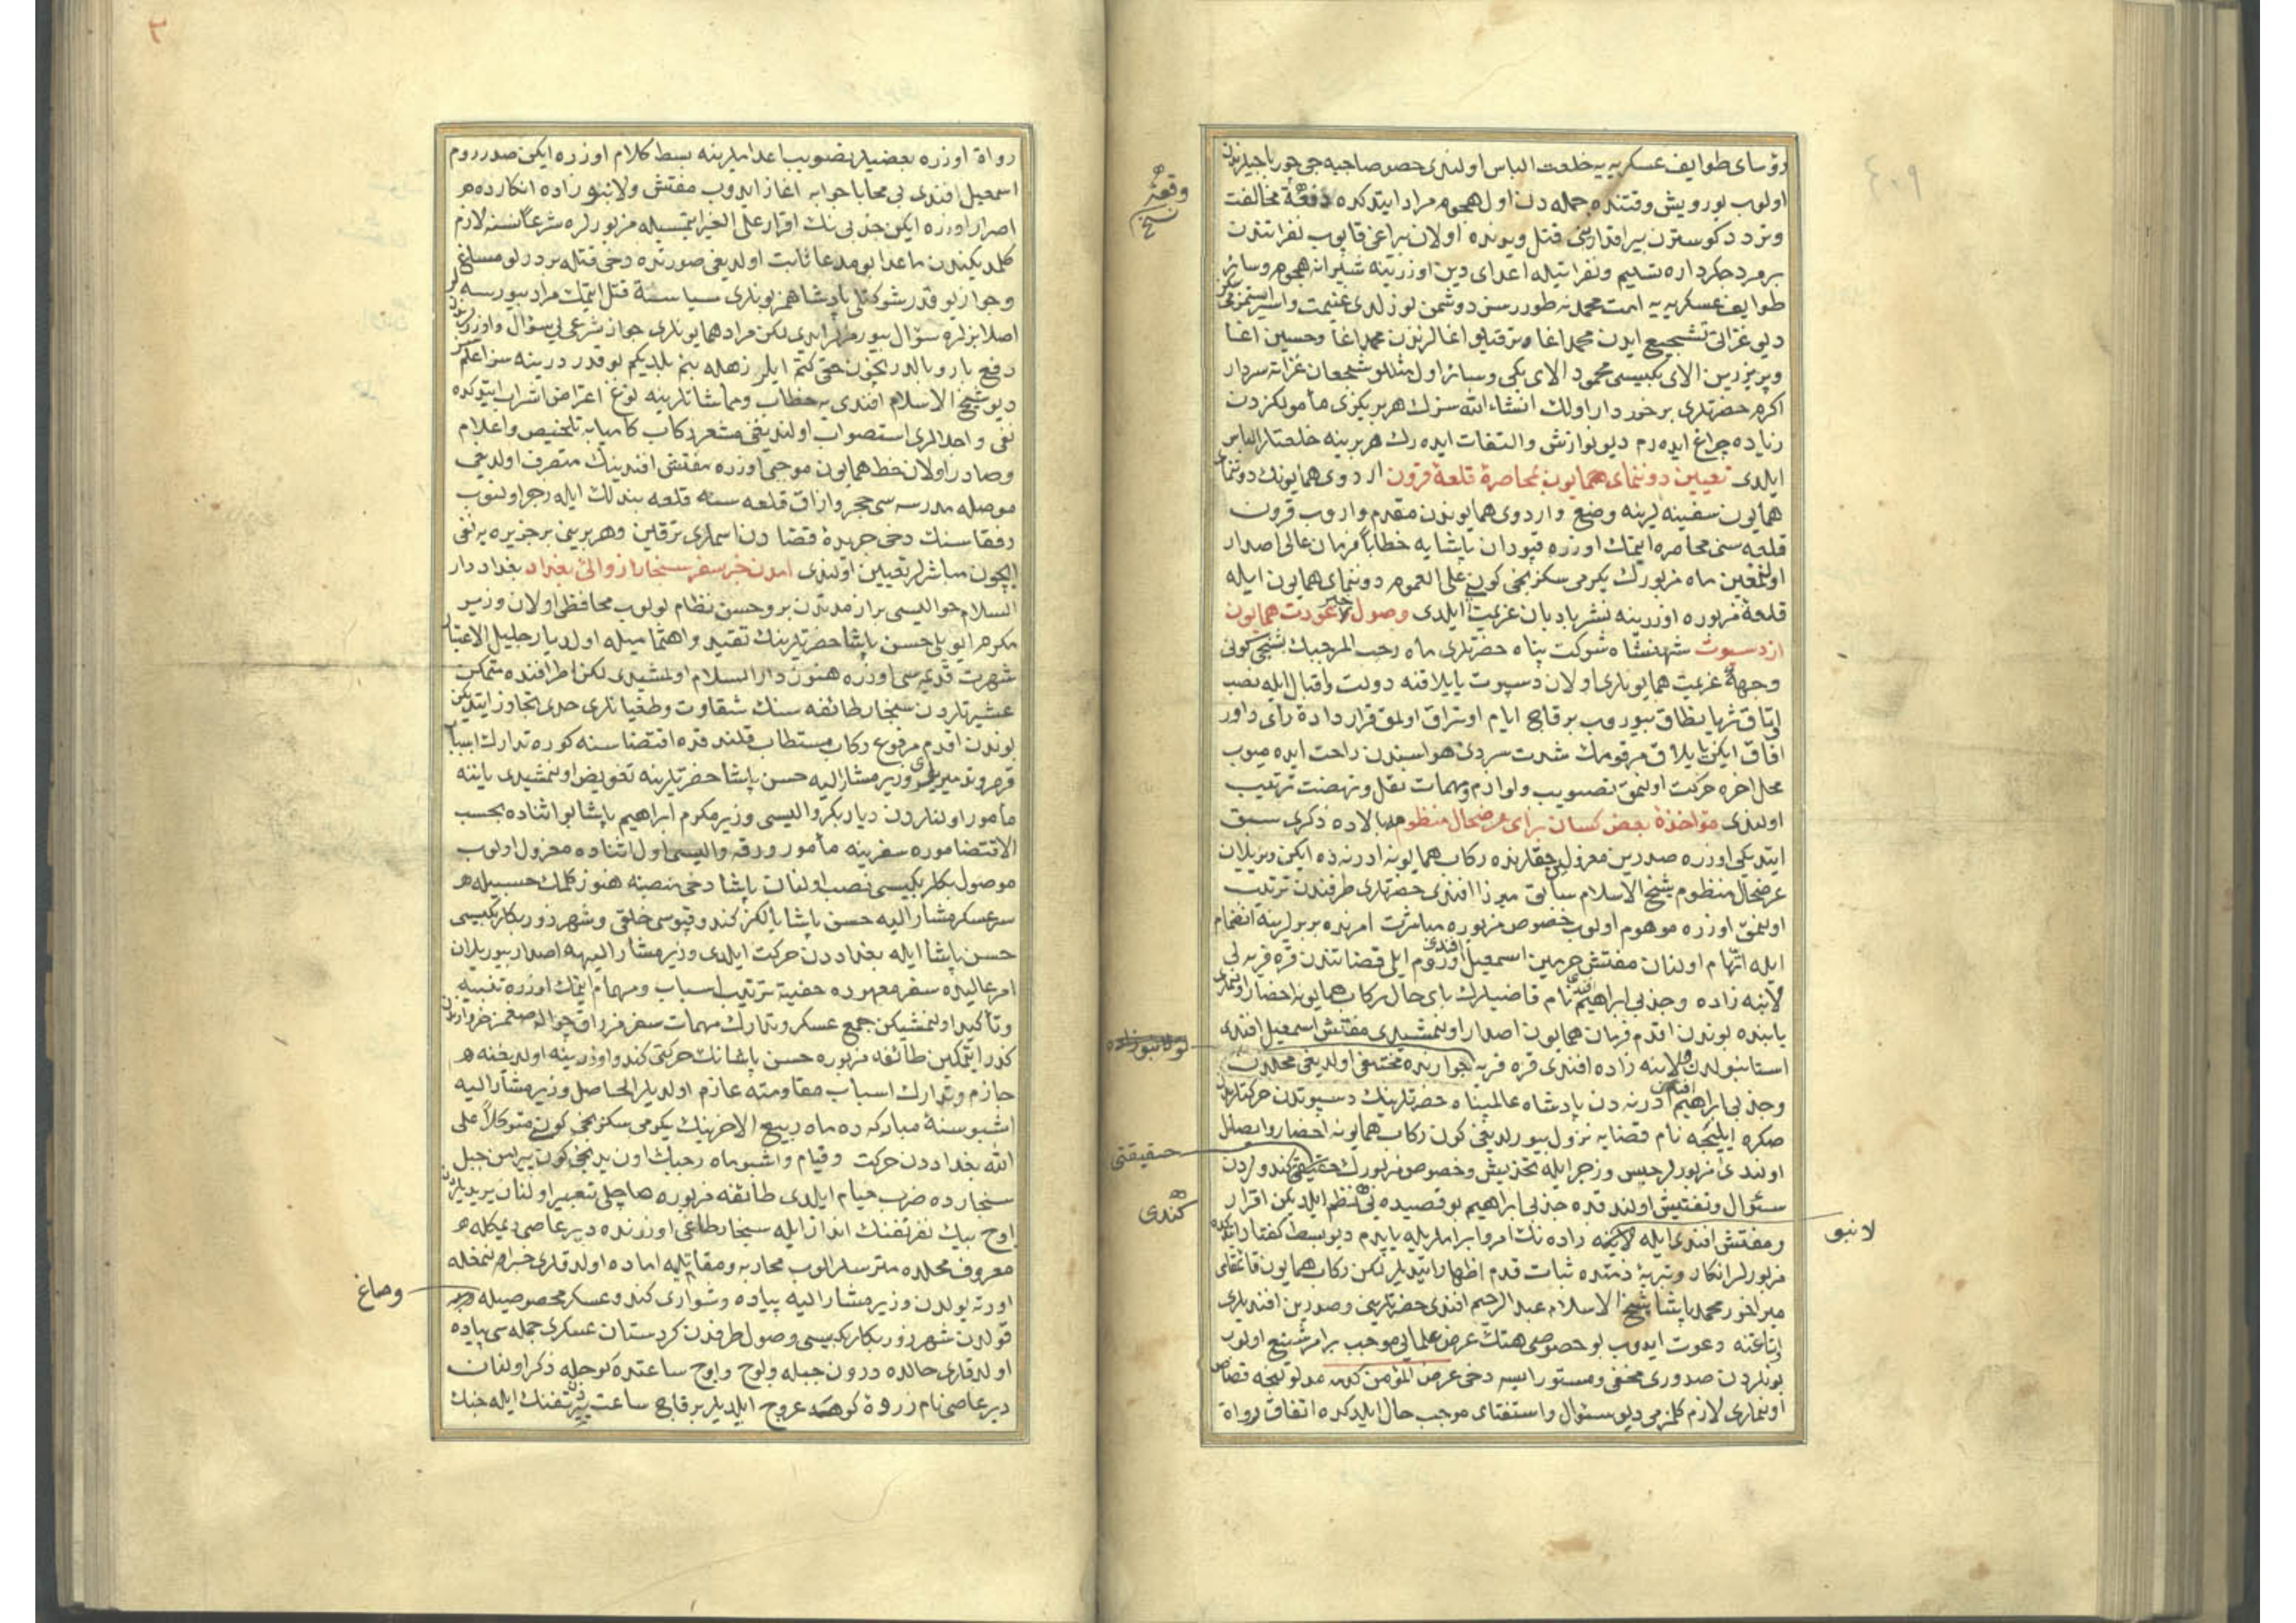 رؤسای طوایف عسکریه یه خلعت الباس اولندی حصر صاحبه جی چورباجیلرندن
اولوب یورویش وقتنده جمله دن اول هجومه مراد ایتدکده دفعةً مخالفت
وتردد کوسترن بیراقدارینی قتل ویدنده اولان براغی قاپوب نفراتندن
بر مرد جکرداره تسلیم ونفراتیله اعدای دین اوزرینه شیرانه هجوم وسائر
طوایف عسکریه یه امت محمد نه طوررسز دوشمن بوزلدی غنیمت واسیر استمزمیسز
دیو غزاتی تشجیع ایدن محمد اغا وترقیلو اغالرندن محمد اغا وحسین اغا
وپریزرین الای بکیسی محمود الای بکی وسائر اول مثللو شجعان غزاته سردار
اکرم حضرتلری برخوردار اولک انشاء الله سزک هر بریکزی مأمولکزدن
زیاده چراغ ایده رم دیو نوازش والتفات ایده رک هر برینه خلعتلر الباس
ایلدی تعیین دونمای همایون بمحاصرهٔ قلعهٔ قرون اردوی همایونک دونمای
همایون سفینه لرینه وضع واردوی همایوندن مقدم واروب قرون
قلعه سنی محاصره ایتمک اوزره قپودان پاشایه خطاباً فرمان عالی اصدار
اولنمغین ماه مزبورک یکرمی سکزنجی کونی علی العموم دونمای همایون ایله
قلعهٔ مزبوره اوزرینه نشر بادبان عزیمت ایلدی وصول خبر عودت همایون
از دسپوت شهنشاه شوکت پناه حضرتلری ماه رجب المرجبک بشنجی کونی
وجههٔ عزیمت همایونلری اولان دسپوت یایلاقنه دولت واقبال ایله نصب
اوتاق ثریا نطاق بیوروب برقاچ ایام اوتراق اولمق قرارداده رأی داور
افاق ایکن یایلاق مرقومک شدت سردئ هواسندن راحت ایده میوب
محل اخره حرکت اولنمق تصویب ولوازم ومهمات نقل ونهضت ترتیب
اولندی مؤاخذهٔ بعض کسان برای عرضحال منظوم بالاده ذکری سبق
ایتدیکی اوزره صدرین معزوللری حقلرنده رکاب همایونه ادرنه ده ایکن ویریلان
عرضحال منظوم شیخ الاسلام سابق میرزا افندی حضرتلری طرفندن ترتیب
اولنمق اوزره موهوم اولوب خصوص مزبوره مباشرت امرنده بربرلرینه انضمام
ایله اتهام اولنان مفتش حرمین اسمعیل افندی وروم ایلی قضاتندن قره فریه لی
لانبه زاده وجذبی ابراهیم افندی نام قاضیلرک بای حال رکاب همایونه احضار اولنملری
بابنده بوندن اقدم فرمان همایون اصدار اولنمشیدی مفتش اسمعیل افندی
استانبولدن ولانبه زاده افندی قره فریه جوارنده مختفی اولدیغی محلدن
وجذبی ابراهیم افندی ادرنه دن پادشاه عالمپناه حضرتلرینک دسپوتدن حرکتلرندن
صکره ایلیجه نام قضایه نزول بیورلدیغی کون رکاب همایونه احضار وایصال
اولندی مزبورلر حبس وزجر ایله تخدیش وخصوص مزبورک حقیقتی کندولردن
سئوال وتفتیش اولندقده جذبی ابراهیم بو قصیده یی نظم ایلدیکن اقرار
ومفتش افندی ایله لانبه زاده نک امر وابراملریله یاپدم دیو بسط کفتار ایتدکده
مزبورلر انکار وتبرئهٔ ذمتده ثبات قدم اظهار ایتدیلر لکن رکاب همایون قائمقامی
میراخور محمد پاشا شیخ الاسلام عبد الرحیم افندی حضرتلرینی وصدرین افندیلری
اوتاغنه دعوت ایدوب بو خصوصی هتک عرض علمایی موجب بر امر شنیع اولوب
بونلردن صدوری مخفی ومستور ایسه دخی عرض المؤمن کدمه مدلولنجه قصاص
اولنملری لازم کلمزمی دیو سئوال واستفتای موجب حال ایلدکده اتفاق رواة
وقعهٔ
نسخ
حقیقتی
کندی
لانبو
رواة اوزره بعضیلر تصویب باعدا ملرینه بسط کلام اوزره ایکن صدر روم
اسمعیل افندی بی محابا جوابه اغاز ایدوب مفتش ولانبو زاده انکارده
اصرار اوزره ایکن جذبی نک اقرار علی الغیر ایتمسیله مزبورلره شرعاً نسنه لازم
کلمدیکندن ماعدا بو مدعا ثابت اولدیغی صورتده دخی قتله بر درلو مساغ
وجواز یوقدر شوکتلو پادشاهمز بونلری سیاسةً قتل ایتمک مراد بیورسه لر
اصلا بزلره سؤال بیورمزلر ایدی لکن مراد همایونلری جواز شرعی لی سؤال واوزرلرندن
دفع بار وبالدر بخون حقی کتم ایلرز هله بنم بلدیکم بو قدر درینه سز اعلمسز
دیو شیخ الاسلام افندی یه خطاب ومماشاتلرینه نوع اعتراض اشراب ایتدکده
نفی واجلالری استصواب اولندیغی مشعر رکاب کامیابه تلخیص واعلام
وصادر اولان خط همایون موجبی اوزره مفتش افندینک متصرف اولدیغی
موصله مدرسه سی حجر وازاق قلعه سنه قلعه بندلک ایله زجر اولنوب
رفقاسنک دخی جریدهٔ قضادن اسملری ترقین وهر برینی بر جزیره یه نفی
ایچون مباشرلر تعیین اولندی امدن خبر سفر سنجار از والئ بغداد بغداد دار
السلام حوالیسی براز مدتدن برو حسن نظام بولوب محافظی اولان وزیر
مکرم ایوبلی حسن پاشا حضرتلرینک تقید واهتمامیله اول دیار جلیل الاعتبار
شهرت قدیمه سی اوزره هنوز دار السلام اولمشیدی لکن اطرافنده متمکن
عشیرتلردن سنجار طائفه سنک شقاوت وطغیانلری حددن تجاوز ایتدیکن
بوندن اقدم مرفوع رکاب مستطاب قلندقده اقتضاسنه کوره تدارک اسباب
قهر وتدمیرلری وزیر مشار الیه حسن پاشا حضرتلرینه تفویض اولنمشیدی یاننه
مأمور اولنلردن دیاربکر والیسی وزیر مکرم ابراهیم پاشا بو اثناده بحسب
الاقتضا موره سفرینه مأمور ورقه والیسی اول اثناده معزول اولوب
موصول بکلربکیسی نصب اولنان پاشا دخی منصبنه هنوز کلمک حسبیله
سرعسکر مشار الیه حسن پاشا یالکز کندو قپوسی خلقی وشهرزور بکلربکیسی
حسن پاشا ایله بغداددن حرکت ایلدی وزیر مشار الیهه اصدار بیوریلان
امر عالیده سفر معهوده خفیةً ترتیب اسباب ومهام ایتمک اوزره تنبیه
وتأکید اولنمشیکن جمع عسکر وتدارک مهمات سفر فرراق حواله صغمز خروارلردن
کذر ایتمکین طائفه مزبوره حسن پاشانک حرکتی کندو اوزرینه اولدیغنه
جازم وتدارک اسباب مقاومته عازم اولدیلر الحاصل وزیر مشار الیه
اشبو سنهٔ مبارکه ده ماه ربیع الاخرینک یکرمی سکزنجی کونی متوکلاً علی
الله بغداددن حرکت وقیام واشبو ماه رجبک اون یدنجی کونی پیرامن جبل
سنجارده ضرب خیام ایلدی طائفه مزبوره هاچلی تعبیر اولنان یزیدیلردن
اوچ بیک نفر تفنک انداز ایله سنجار طاغی اوزرنده دیر عاصی دیمکله
معروف محلده مترسلر الوب محاربه ومقاتله اماده اولدقلری خبر النمغله
اورته یولدن وزیر مشار الیه پیاده وسواری کندو عسکر مخصوصیله
قولدن شهرزور بکلربکیسی وصول طرفدن کردستان عسکری جمله سی پیاده
اولدقلری حالده درون جبله ولوج واوچ ساعتده کوجله ذکر اولنان
دیر عاصی نام زروهٔ کوهه عروج ایلدیلر برقاچ ساعت تیر تفنک ایله جنک
وصاغ